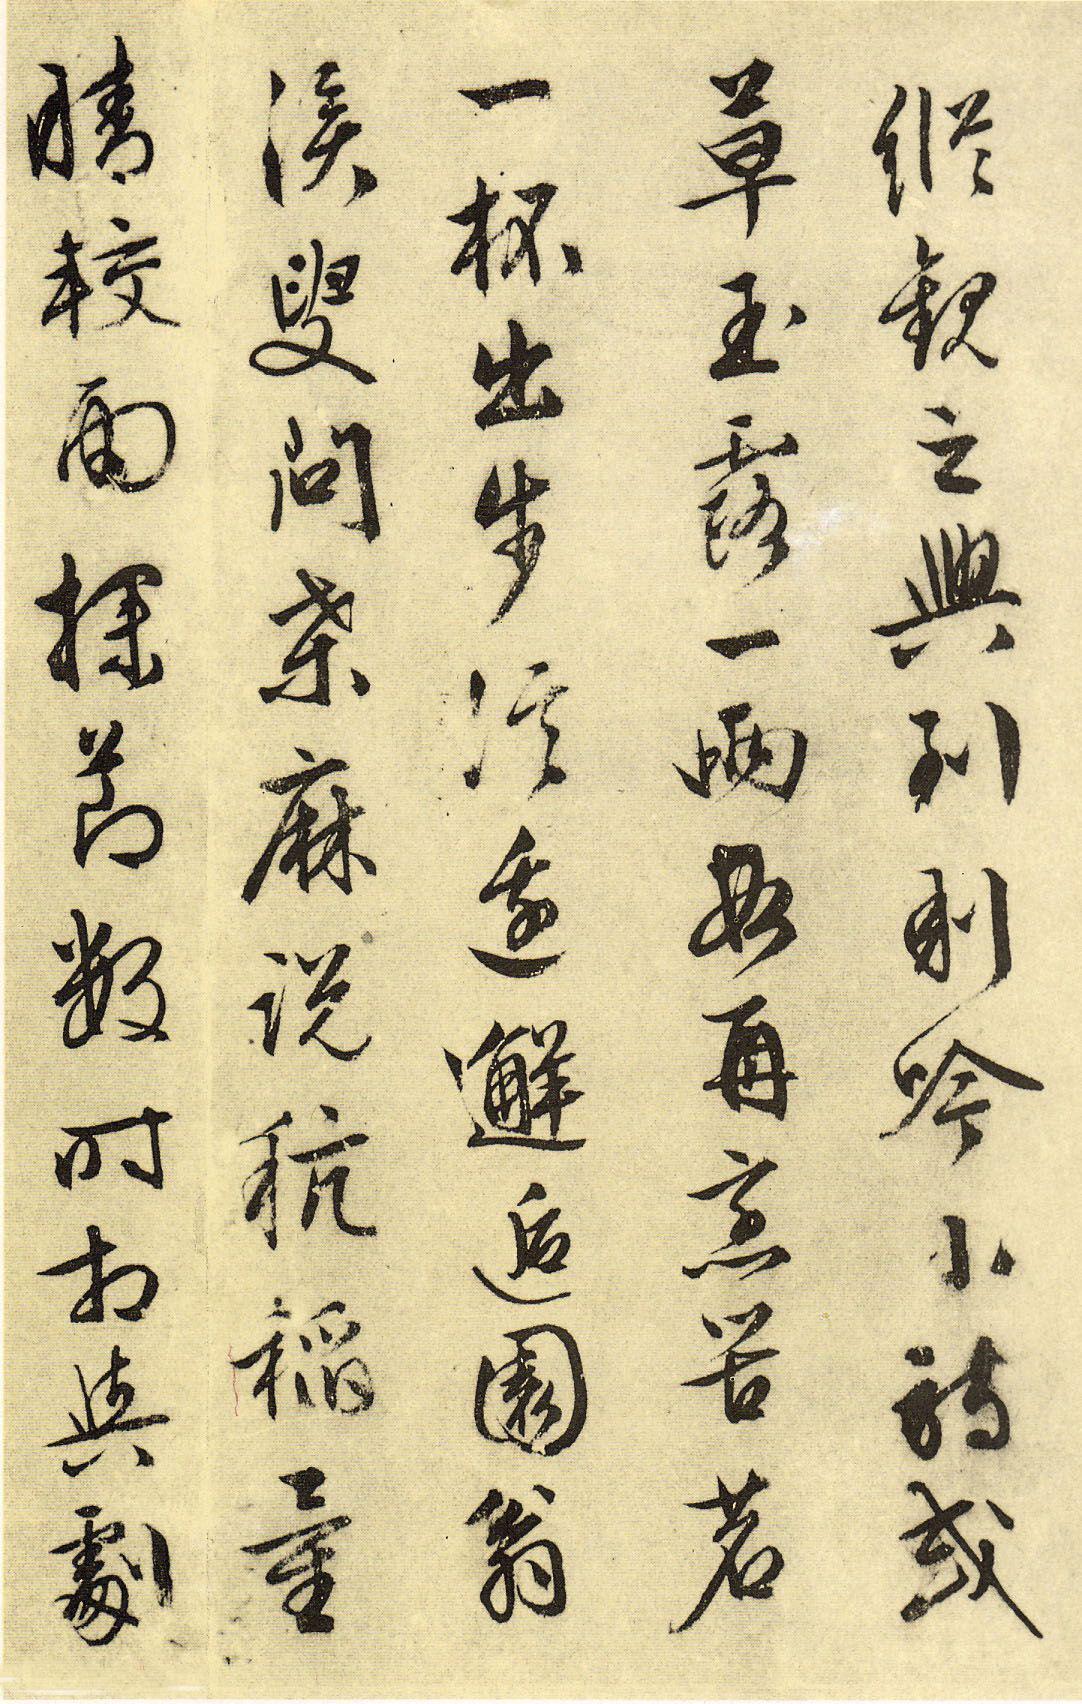 縱觀之興到則吟小詩或
草玉露一兩段再烹苦茗
一杯出步溪邊邂逅園翁
溪叟問桑麻說秔稻量
晴較雨探節數時相與劇